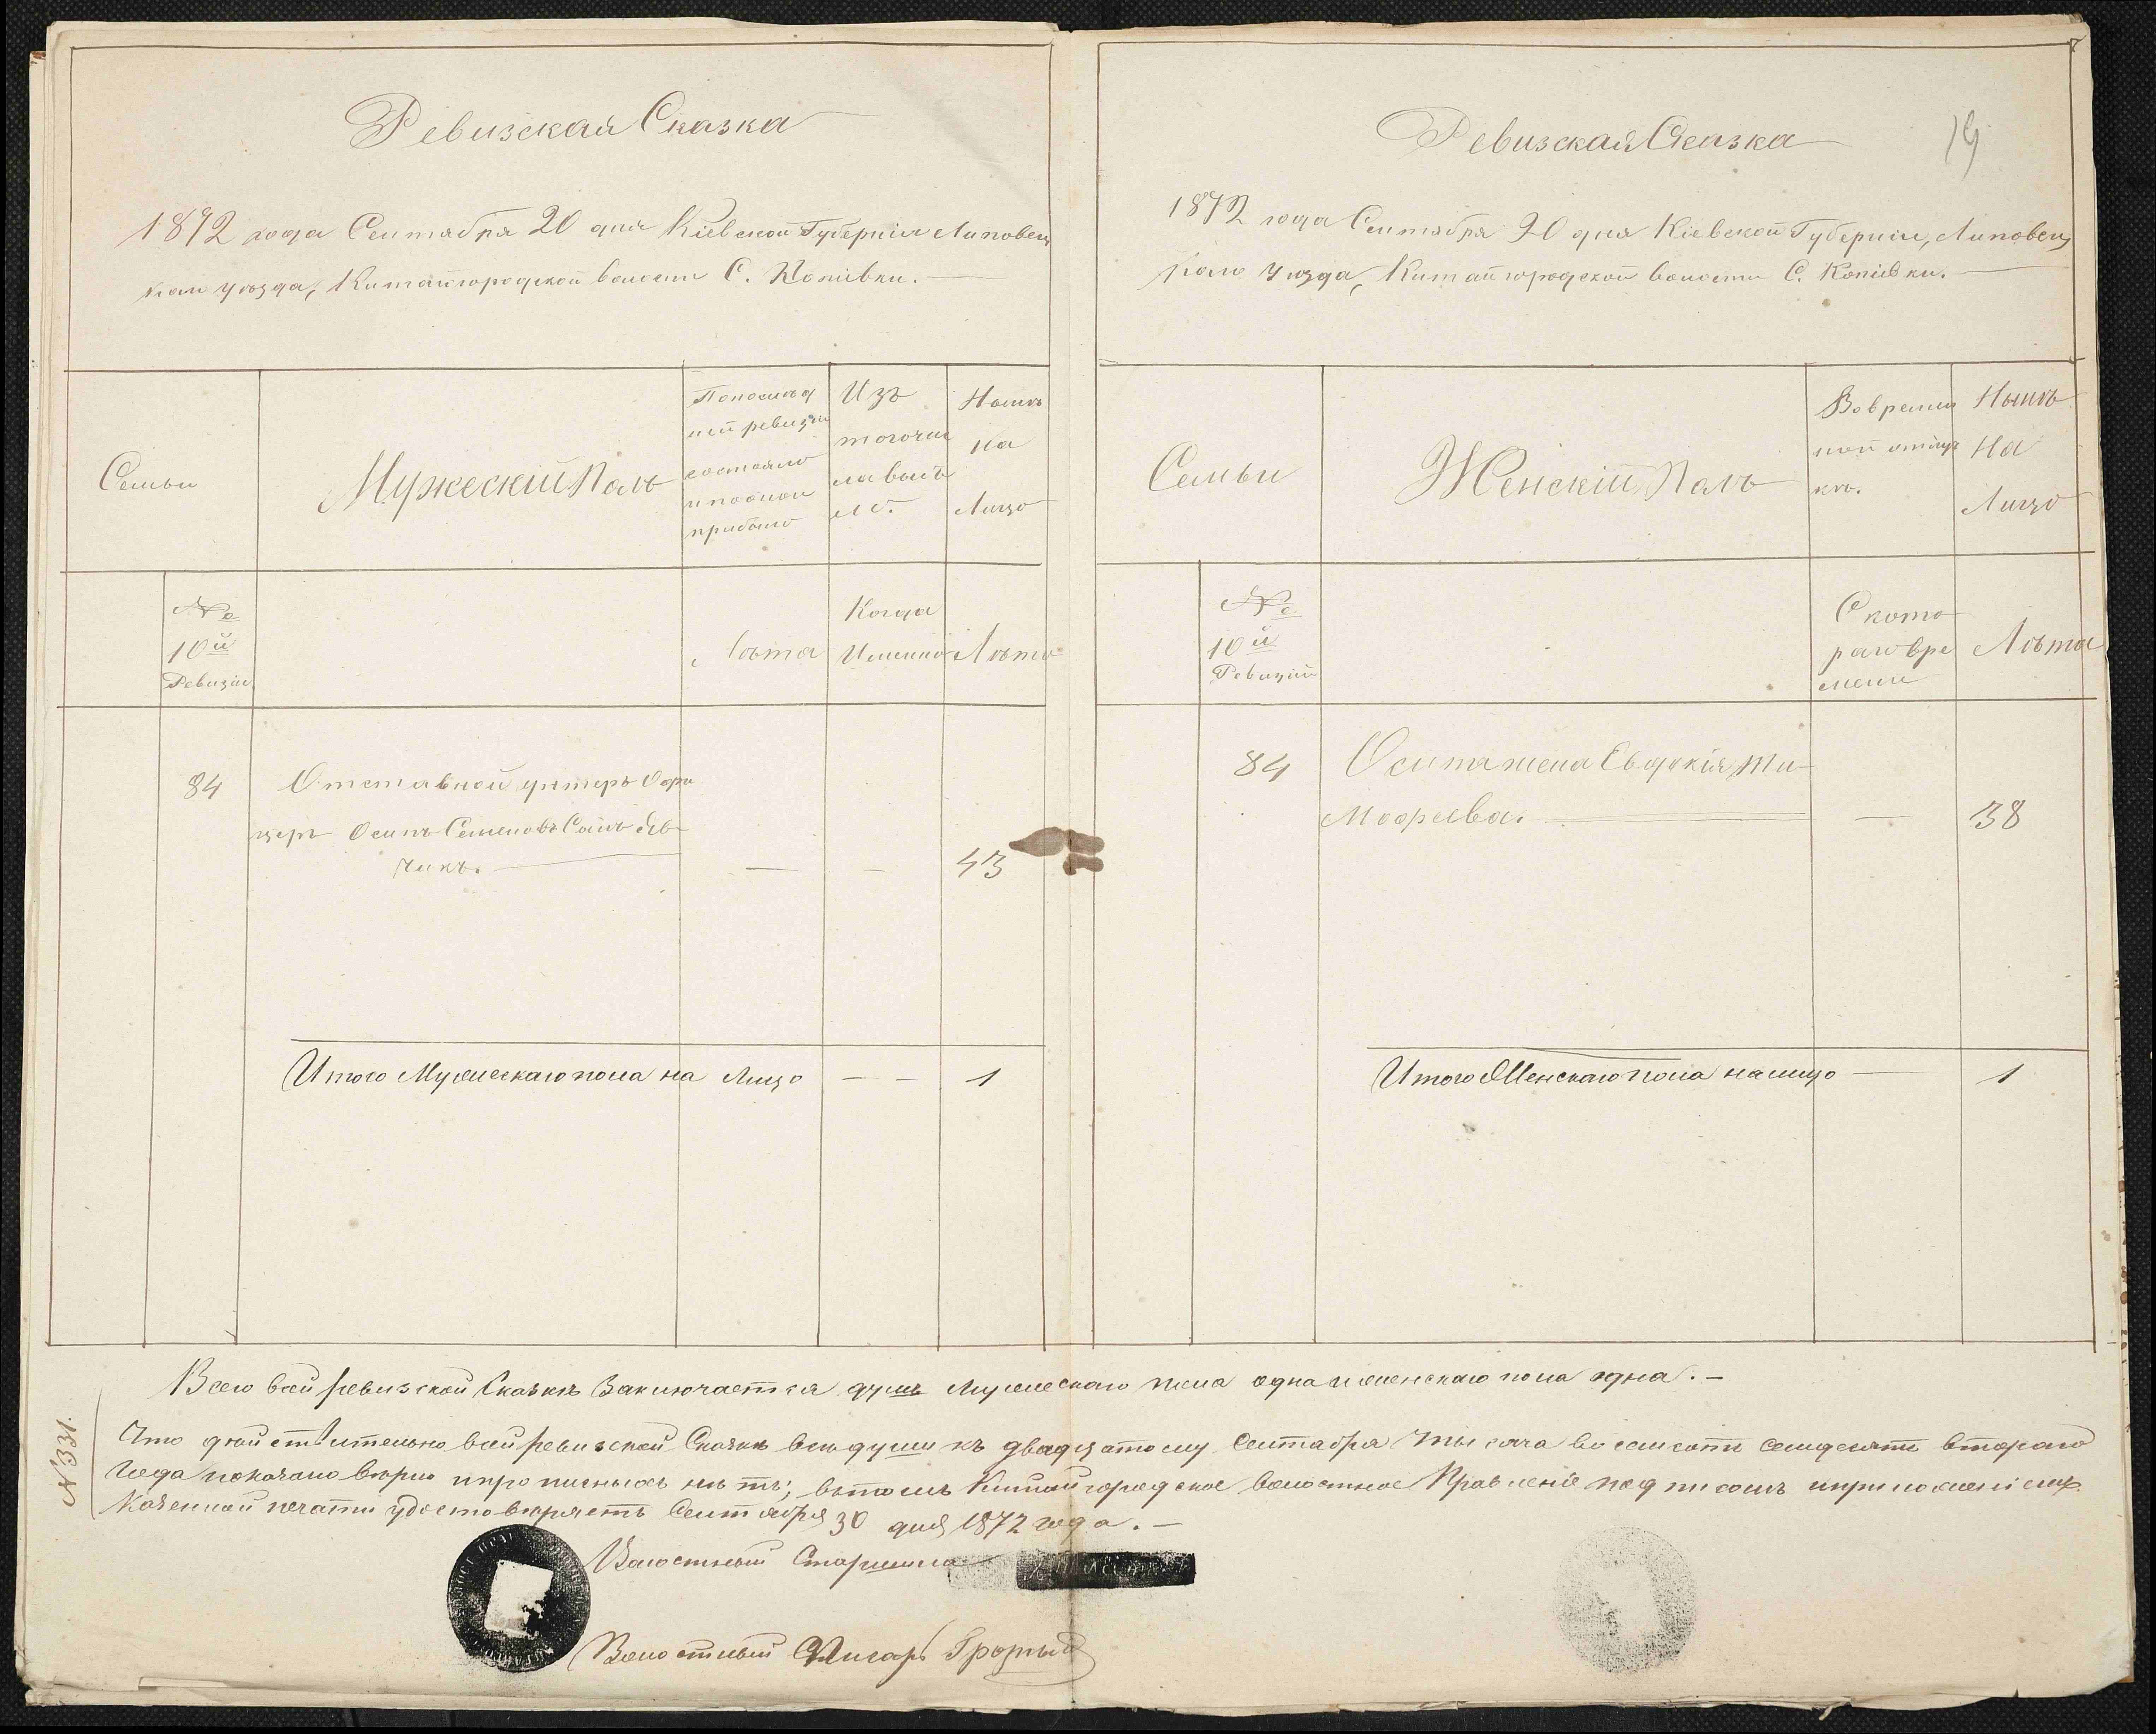 Ревизская Сказка
1872 года Сентября 20 дня Кіевской Губерніи Липовец
каго уѣзда, Китайгородской волости С. Копіевки.
Семьи
Мужескій Полъ
По послѣд
ней ревизіи
состояло
и после оной
прибыло
Изъ
того числа
выбыло
Нынѣ
на
Лицо
№
10й
Ревизіи
Лѣта
Когда
Именно
Лѣта
84
Отставной унтеръ Офи
церъ Осипъ Семеновъ Сынъ
чикъ.
—
—
43
Итого Мужескаго пола на Лицо — — 1
Ревизская Сказка
19
1872 года Сентября 20 дня Кіевской Губерніи, Липовец
каго Уѣзда, Китайгородской волости С. Копіевки.
Семьи
Женскій Полъ
Во времен
ной отлуч
кѣ.
Нынѣ
На
Лицо
№
10й
Ревизіи
С кото
раго вре
мени
Лѣта
84
Осипа жена Евдокія Ти-
мофеева.
—
38
Итого Женскаго пола на лицо — 1
Всего в сей ревизской Сказкѣ Заключается душъ Мужескаго пола одна и женскаго пола одна. —
№ 331.
Что дѣйствительно в сей ревизской Сказкѣ все души къ двадцатому Сентября тысяча восемсотъ семдесятъ втораго
Года показано вѣрно и прописныхъ нѣтъ; в томъ Китайгородское волостное Правленіе подписомъ и приложеніемъ
Казенной печати удостовѣряетъ Сентября 30 дня 1872 года. —
Волостный Старшина
Волостный Писарь